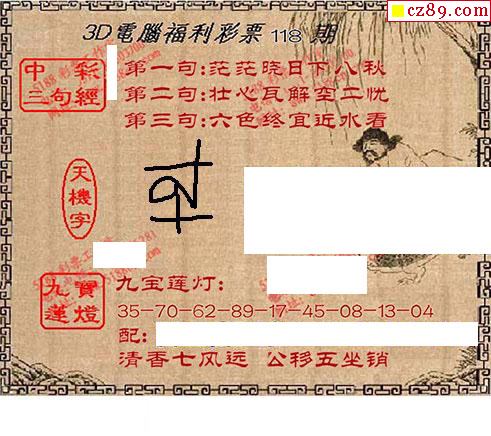 cz89.com
3D電腦福利彩票 118 期
中彩三句經
第一句:茫茫晓日下八秋
第二句:壮心瓦解空二忧
第三句:六色终宜近水看
天機字
九寶蓮燈
九宝莲灯:
35-70-62-89-17-45-08-13-04
配:
清香七风远 公移五坐销